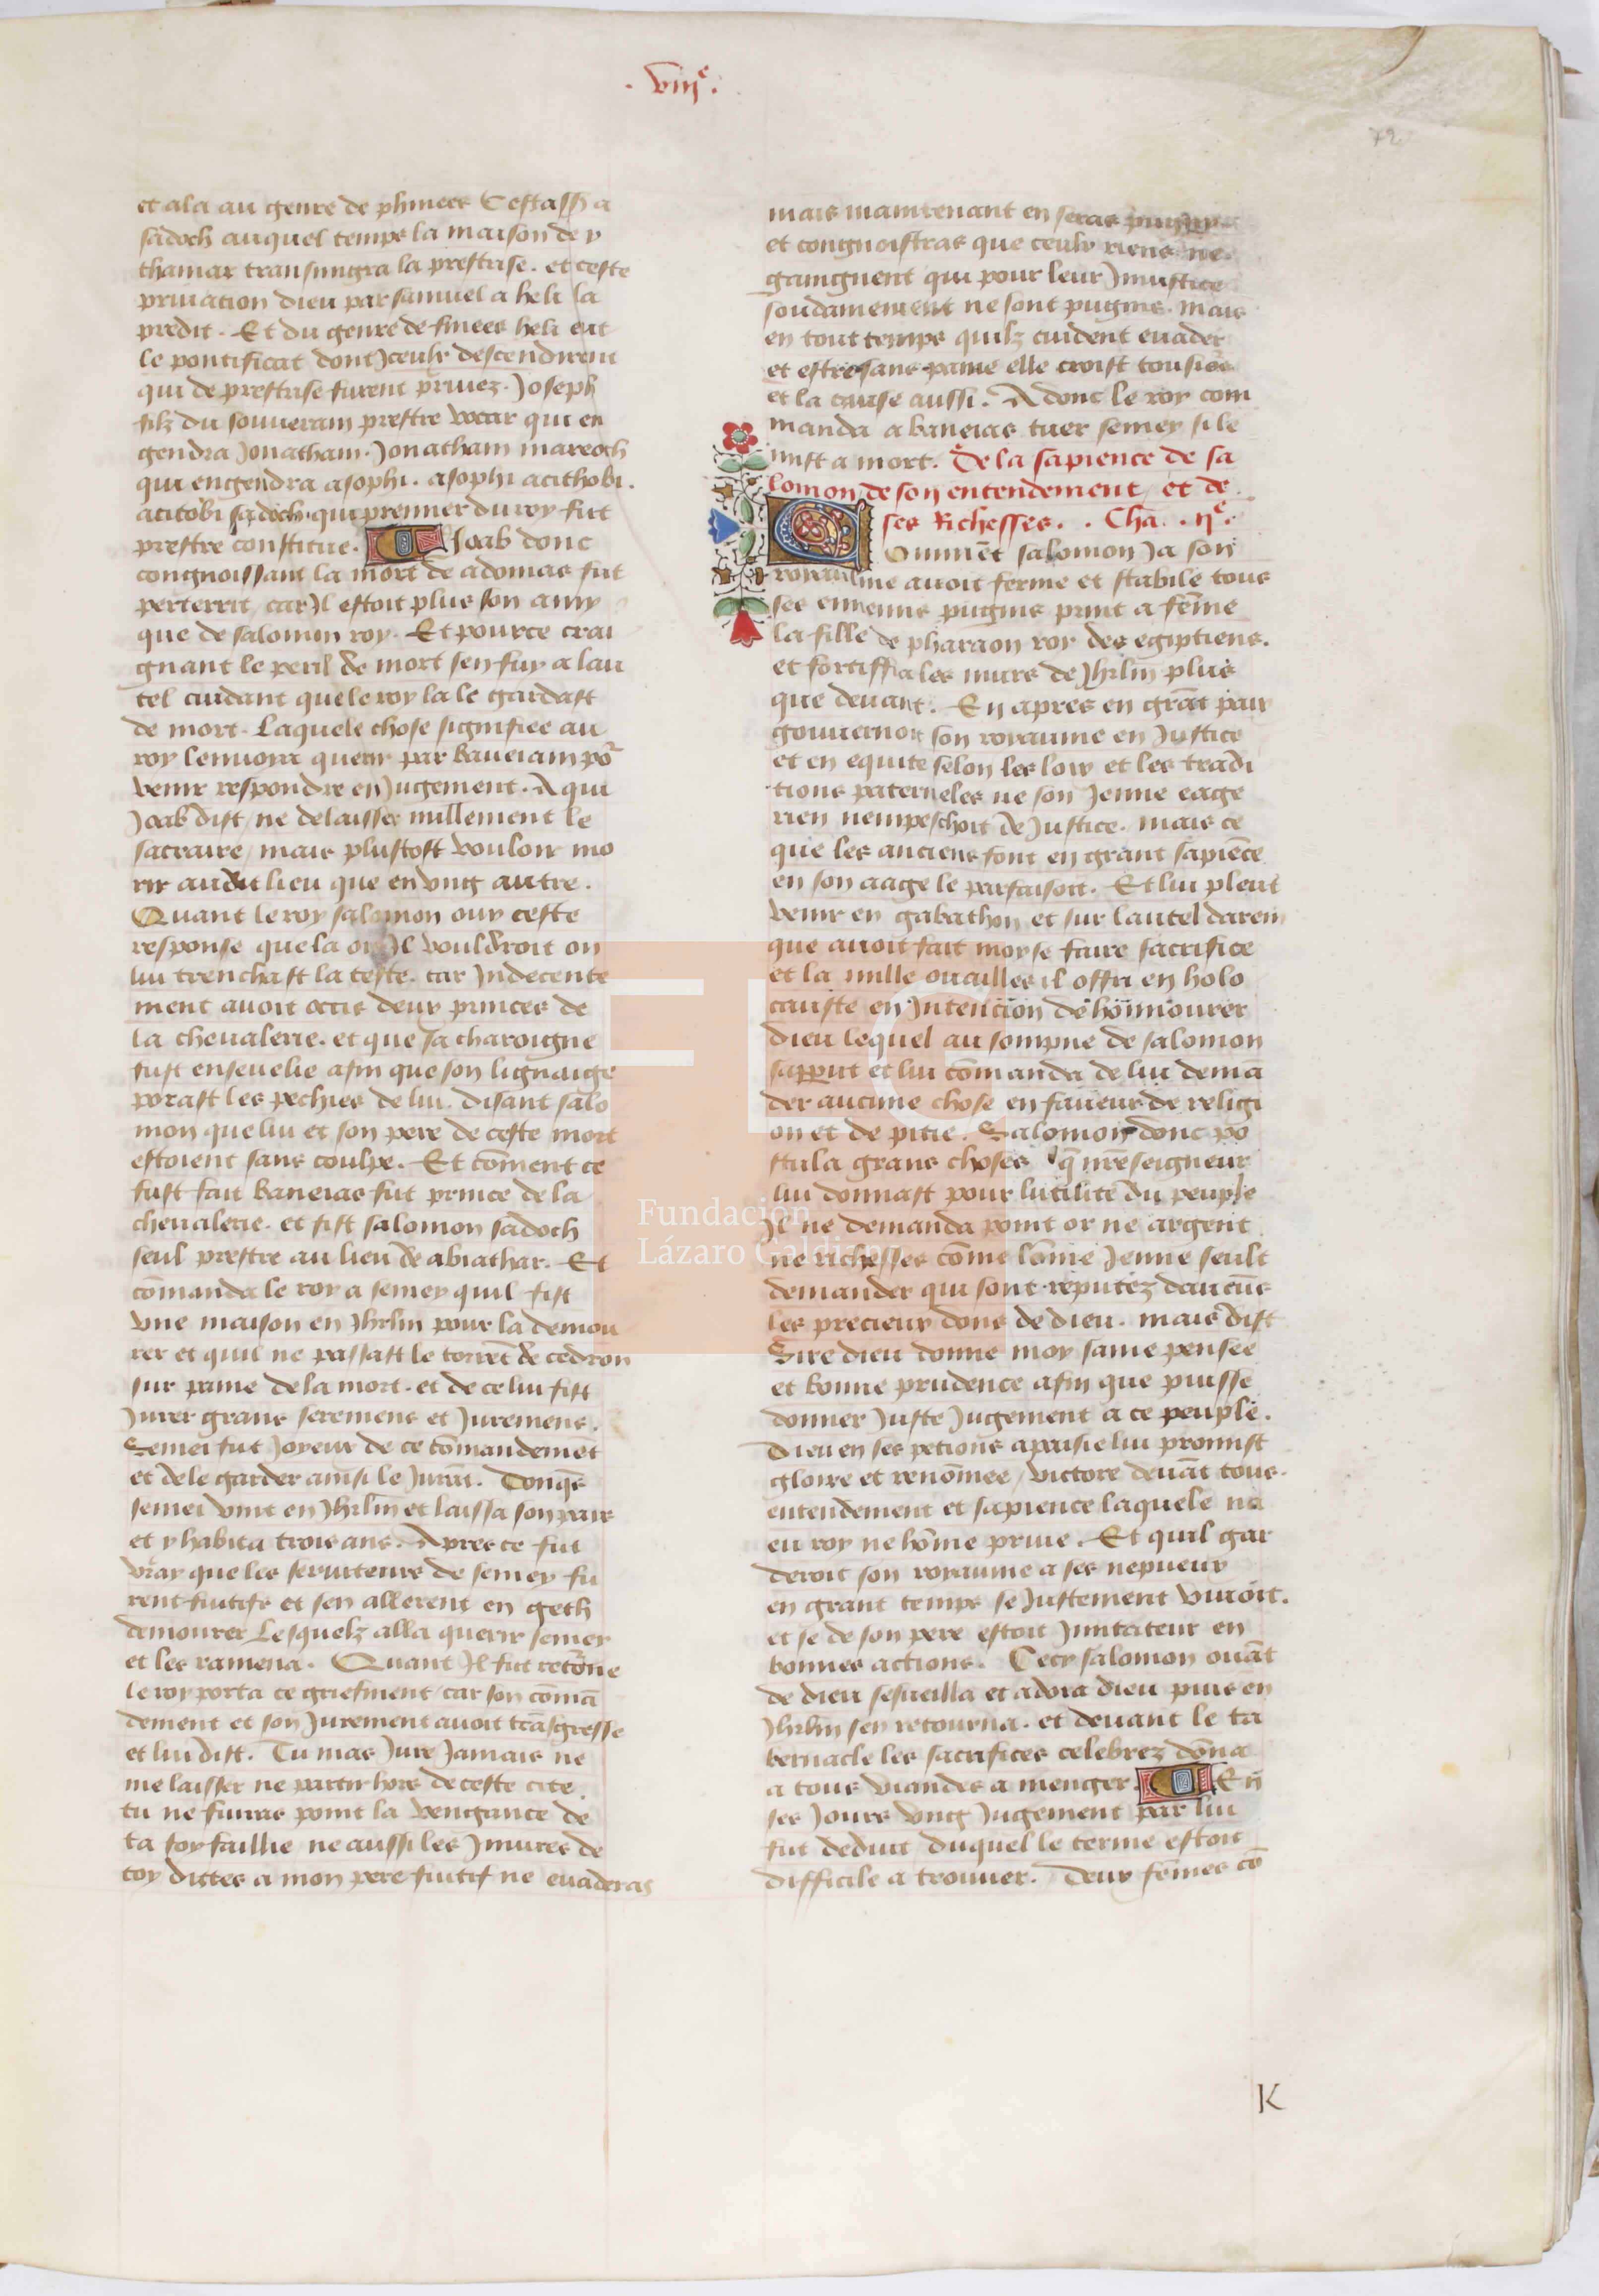 . viije .
72
et ala au genre de phinees Cestassa
sadoch auquel temps la maison de y
thamar transmigra la prestrise. et ceste
priuation dieu par samuel a heli la
predit. Et du genre de finees heli eut
le pontificat dont Jceulx descendirent
qui de prestrise furent priuez. Joseph
filz du souuerain prestre vocar qui en
gendra Jonatham. Jonatham mareoch
qui engendra asophi. asophi acithobi.
acitobi sadoch. qui premier du roy fut
prestre constitue. Joab donc
congnoissant la mort de adomas fut
perterrit, car Jl estoit plus son amy
que de salomon roy. Et pource crai
gnant le peril de mort sen fuy a lau
tel cuidant que le roy la le gardast
de mort. Laquele chose signifiee au
roy lenuoia querir par baneiam po
venir respondre en Jugement. A qui
Joab dist / ne delaisser nullement le
sacraire / mais plustost vouloir mo
rir audit lieu que en vng autre.
Quant le roy salomon ouy ceste
response que la ou Jl vouldroit on
lui trenchast la teste. car Jndecente
ment auoit occis deux princes de
la cheualerie. et que sa charoigne
fust enseuelie afin que son lignaige
portast les pechies de lui. disant salo
mon que lui et son pere de ceste mort
estoient sans coulpe. Et cōment ce
fust fait baneias fut prince de la
cheualerie. et fist salomon sadoch
seul prestre au lieu de abiathar. Et
cōmanda le roy a semey quil fist
vne maison en Jhrlm pour la demou
rer et quil ne passast le torrēt de cedron
sur paine de la mort. et de ce lui fist
Jurer grans seremens et Juremens.
Semei fut Joyeux de ce cōmandemēt
et de le garder ainsi le Jurāt. Donqs
semei vint en Jhrlm et laissa son pais
et y habita trois ans. Apres ce fut
vray que les seruiteurs de semey fu
rent fuitifz et sen allerent en geth
demourer Lesquelz alla querir semey
et les ramena. Quant Jl fut retōrne
le roy porta ce griefment / car son cōmā
dement et son Jurement auoit trāsgresse
et lui dist. Tu mas Jure Jamais ne
me laisser ne partir hors de ceste cite.
tu ne fuiras point la vengance de
ta foy faillie ne aussi les Jniures de
toy dittes a mon pere fuitif ne euaderas
mais maintenant en seras pugny
et congnoistras que ceulx riens ne
gaingnent qui pour leur Jniustice
soudainement ne sont pugnis. mais
en tout temps quilz cuident euader
et estre sans paine elle croist tousiours
et la cause aussi. Adonc le roy com
manda a baneias tuer semey si le
mist a mort. De la sapience de sa
lomon / de son entendement / et de
ses Richesses. . Cha. . ije.
Comment salomon Ja son
royaulme auoit ferme et stabile tous
ses ennemis pugnis print a fēme
la fille de pharaon roy des egiptiens.
et fortiffia les murs de Jhrlm plus
que deuant. En apres en grāt paix
gouuernoit son royaume en Justice
et en equite selon les loix et les tradi
tions paterneles ne son Jenne eage
rien nempeschoit de Justice. mais ce
que les anciens font en grant sapiēce
en son aage le parfaisoit. Et lui pleut
venir en gabathon et sur lautel darein
que auoit fait moyse faire sacrifice
et la mille ouailles il offri en holo
causte en Jntencion de honnourer
dieu lequel au sompne de salomon
sapparut et lui cōmanda de lui demā
der aucune chose en faueur de religi
on et de pitie. Salomon donc po
stula grans choses q̄ nrē seigneur
lui donnast pour lutilite du peuple
Jl ne demanda point or ne argent
ne richesses cōme lōme Jenne seult
demander qui sont reputez daucūs
les precieux dons de dieu. mais dist
Sire dieu donne moy saine pensee
et bonne prudence afin que puisse
donner Juste Jugement a ce peuple.
Dieu en ses peticions apaisie lui promist
gloire et renōmee / victore deuāt tous.
entendement et sapience laquele na
eu roy ne hōme priue. Et quil gar
deroit son royaume a ses nepueux
en grant temps se Justement viuoit.
et se de son pere estoit Jmitateur en
bonnes actions. Cecy salomon ouāt
de dieu sesueilla et adora dieu puis en
Jhrlm sen retourna. et deuant le ta
bernacle les sacrifices celebrez dōna
a tous viandes a menger. En
ses Jours vng Jugement par lui
fut deduit duquel le terme estoit
difficile a trouuer. Deux fēmes cō
K
Fundación
Lázaro Galdiano